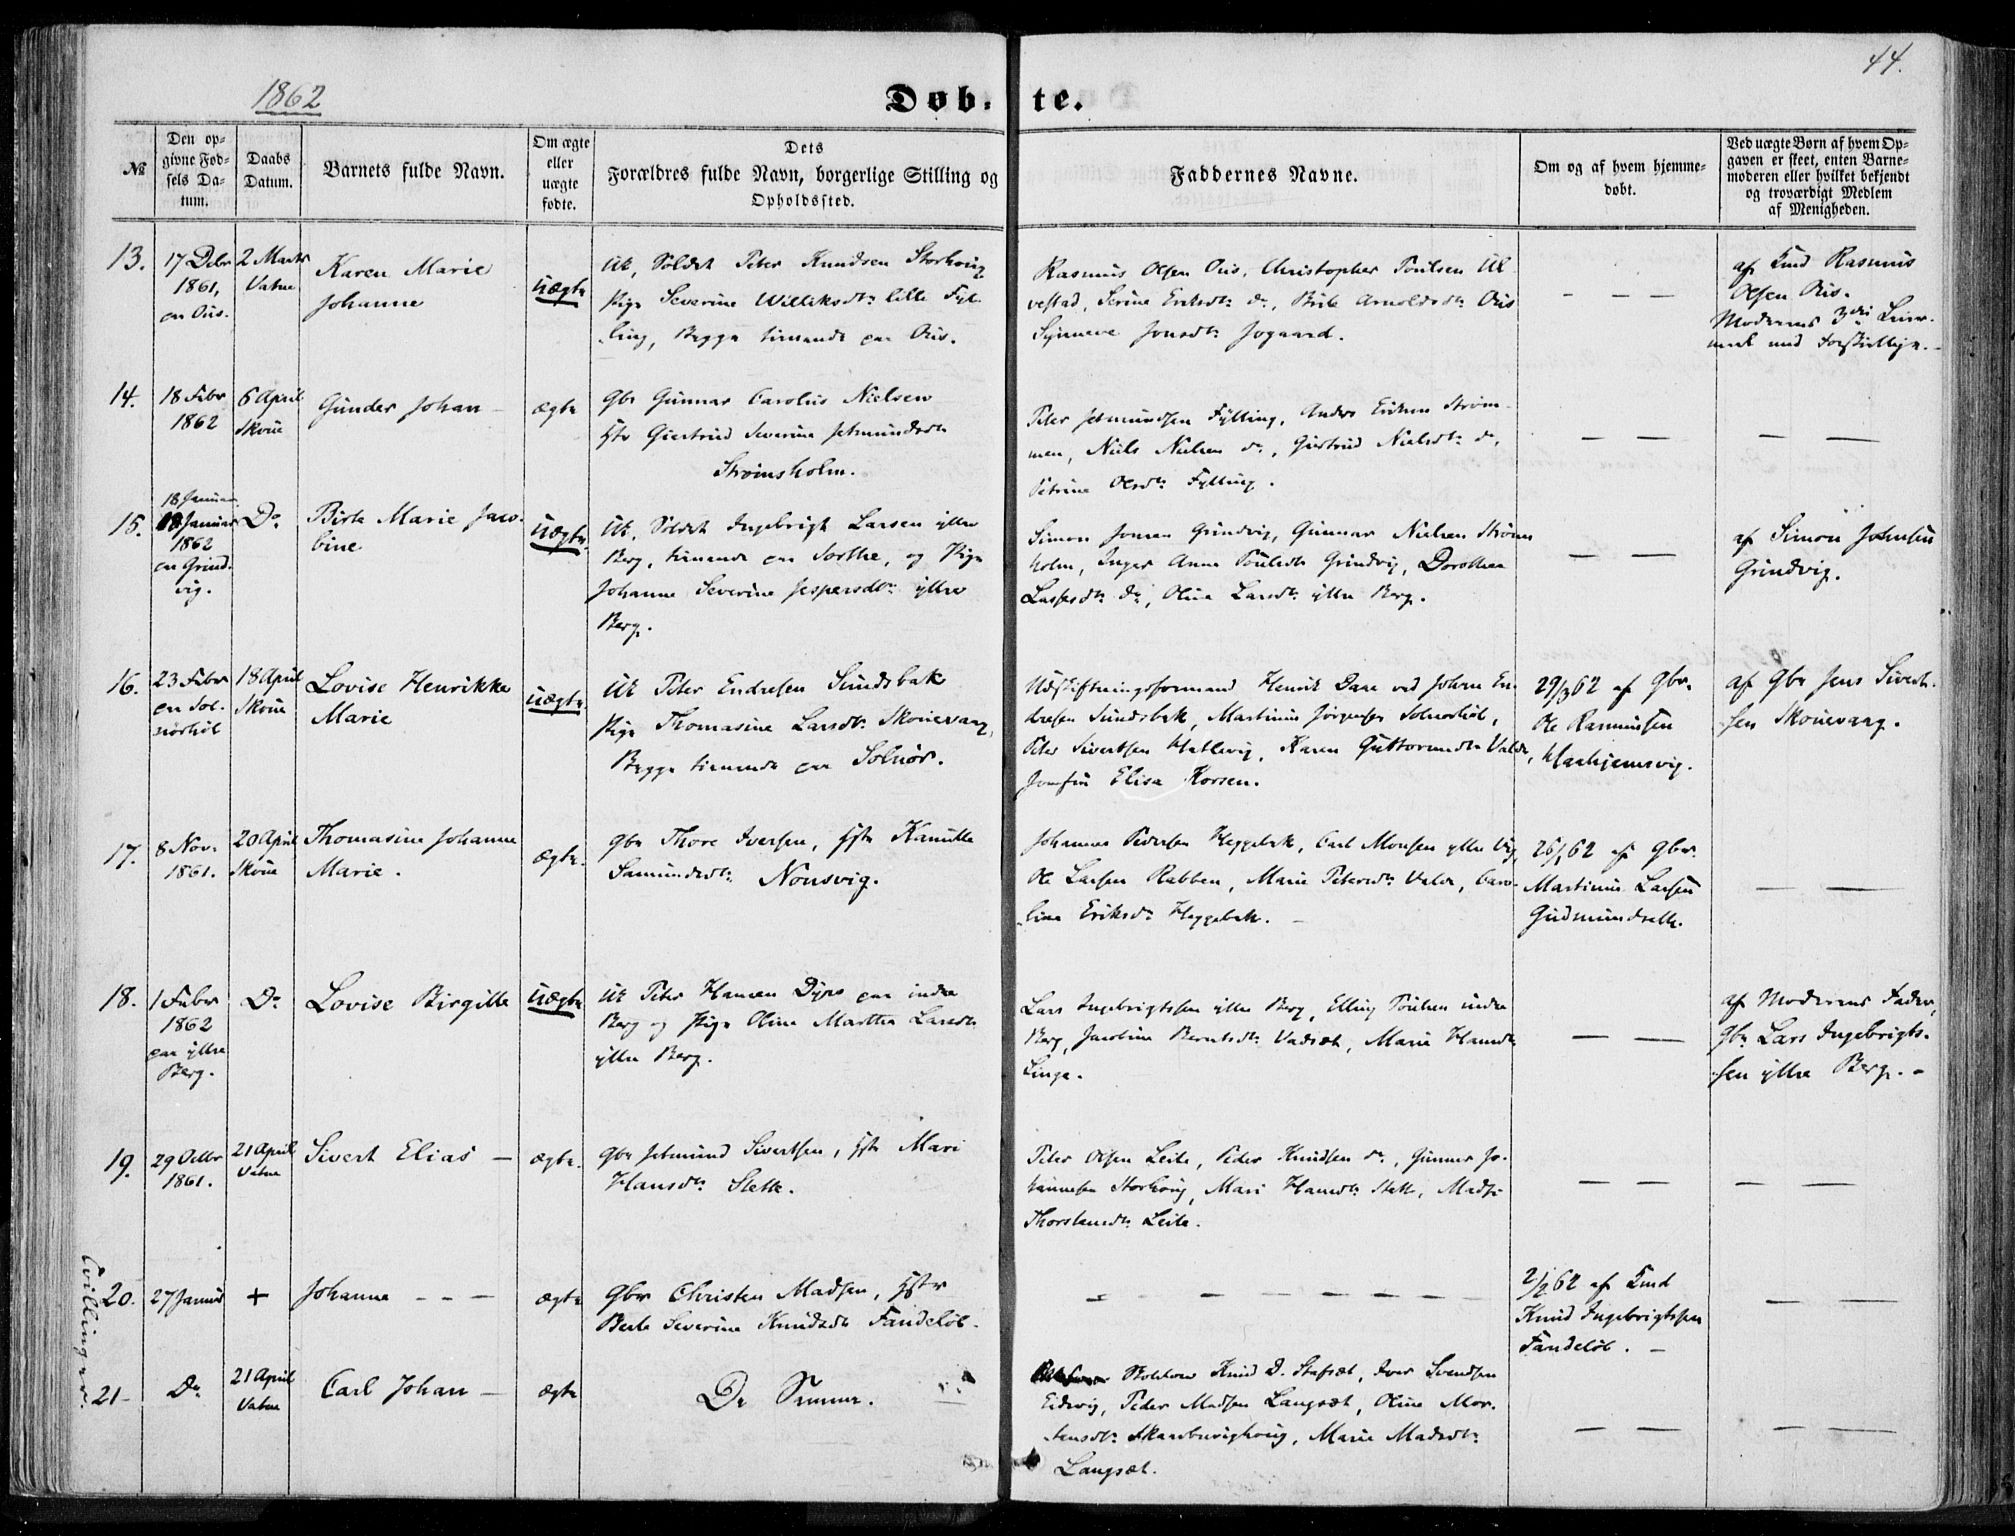 44.
1862
Døb- te.
№
Den op-
givne Fød-
sels Da-
tum.
Daabs
Datum.
Barnets fulde Navn.
Om ægte
eller
uægte
fødte.
Dets
Forældres fulde Navn, borgerlige Stilling og
Opholdssted.
Faddernes Navne.
Om og af hvem hjemme-
døbt.
Ved uægte Børn af hvem Op-
gaven er skeet, enten Barne-
moderen eller hvilket bekjendt
og troværdigt Medlem
af Menigheden.
13.
17 Debr
1861,
paa Øiis.
2 Marts
Vatne
Karen Marie
Johanne
uægte
Uk, Soldat Peter Knudsen Storhoug
Pige Severine Willeksdtr lille Fyl-
ling, Begge tienende paa Øiis.
Rasmus Olsen Øiis, Christopher Poulsen Ul-
vestad, Serine Eriksdtr do, Brite Arnoldsdtr Øiis
Synneve Jonsdtr Jogaard.
— — —
af Rasmus
Olsen Øiis.
Moderens 3die Leier-
maal med Forskiellige. -
14.
18 Febr
1862
6 April
Skoue
Gunder Johan —
ægte
Gbr Gunnar Carolus Nielsen
Hst Giertrud Severine Jetmundsdtr
Strømsholm.
Peter Jetmundsen Fylling, Anders Strøm-
men, Niels Nielsen do, Giertrud Nielsdtr do,
Petrine Olsdtr Fylling.
— —
— —
15.
18 Januar
18 Januar
1862
paa Grind-
vig.
Do
Birte Marie Jaco-
bine
uægte.
Uk, Soldat Ingebrigt Larsen yttre
Berg, tienende paa Sorthe, og Pige
Johanne Severine Jespersdtr yttre
Berg.
Simon Jonsen Grindvig, Gunnar Nielsen Strøms-
holm, Inger Anna Poulsdtr Grindvig, Dorothea
Lassesdtr do, Oline Larsdtr yttre Berg.
— —
af Simon Johnsen
Grindvig.
16.
23 Febr
paa Sol-
nørhol
18 April
Skoue
Lovise Henrikke
Marie
uægte.
Uk Peter Endresen Sundsbak
Pige Thomasine Larsdtr Skouevaag,
Begge tienende paa Solnør.
Udskiftningsformand Henrik Daae ved Johan En-
dresen Sundsbak, Martinus Jørgensen
Peter Sivertsen Hatlevig, Karen Guttormsdtr Valde,
Jomfru Elisa Korsen.
29/3 62 af Gbr.
Ole Rasmussen
Haahjemsvig.
af Gbr Jens Siverts-
sen Skouevaag.
17.
8 Nov.
1861.
20 April
Skoue
Thomasine Johanne
Marie.
ægte.
Gbr Thore Iversen, Hst Kanutte
Samundsdtr Nonsvig.
Johannes Pedersen Heggebak, Carl Monsen yttre Vig,
Ole Larsen Rabben, Marie Petersdtr Valde, Caro-
line Eriksdtr Heggebak. —
26/1 62 af Gbr.
Martinus Larsen
Gudmundsætt.
— —
18.
1 Febr
1862
paa yttre
Berg.
Do
Lovise Birgitte
uægte
Uk Peter Hansen Dyre paa indre
Berg og Pige Oline Marthe Larsdtr
yttre Berg.
Lars Ingebrigtssen yttre Berg, Elling Poulsen indre
Berg, Jacobine Berntsdtr Vadset, Marie Hansdtr
Linge.
— —
af Moderens Fader,
Gbr Lars Ingebrigts-
sen yttre Berg. -
19.
29 Octbr
1861.
21 April
Vatne
Sivert Elias —
ægte.
Gbr Jetmund Sivertsen, Hst Mari
Hansdtr Slette.
Peter Olsen Leite, Peder Knudsen do, Gunner Jo-
hannesen Storhoug, Mari Hansdtr Slette, Madsi
Thorstensdtr Leite.
— —
— —
Tvillinger.
20.
27 Januar
+
Johanne - - -
ægte
Gbr Christen Madsen, Hstr
Berte Severine Knudsdtr Tandeløb.
- - - - - - - -
2/2 62 af
Knud Ingebrigtssen
Tandeløb. —
— —
21-
Do
21 April
Vatne
Carl Johan —
ægte
De Samme.
Knud D. Stafset, Iver Svendsen
Eidsvig, Peder Madsen Langsæt, Oline Mor-
tensdtr Skarebrvighoug, Marie Madsdtr
Langsæt.
— —
— —